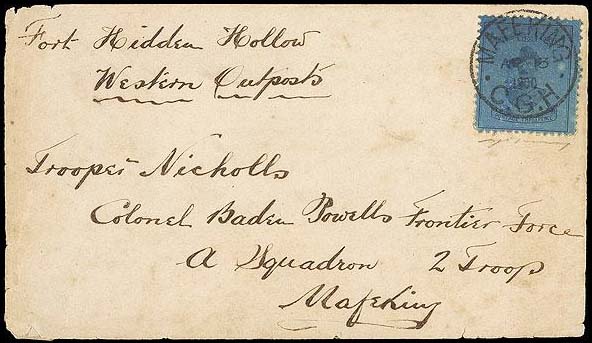 Fort Hidden Hollow
Western Outposts
MAFEKING
C.G.H
Trooper Nicholls
Colonel Baden Powells Frontier Force
A Squadron 2 Troop
Mafeking